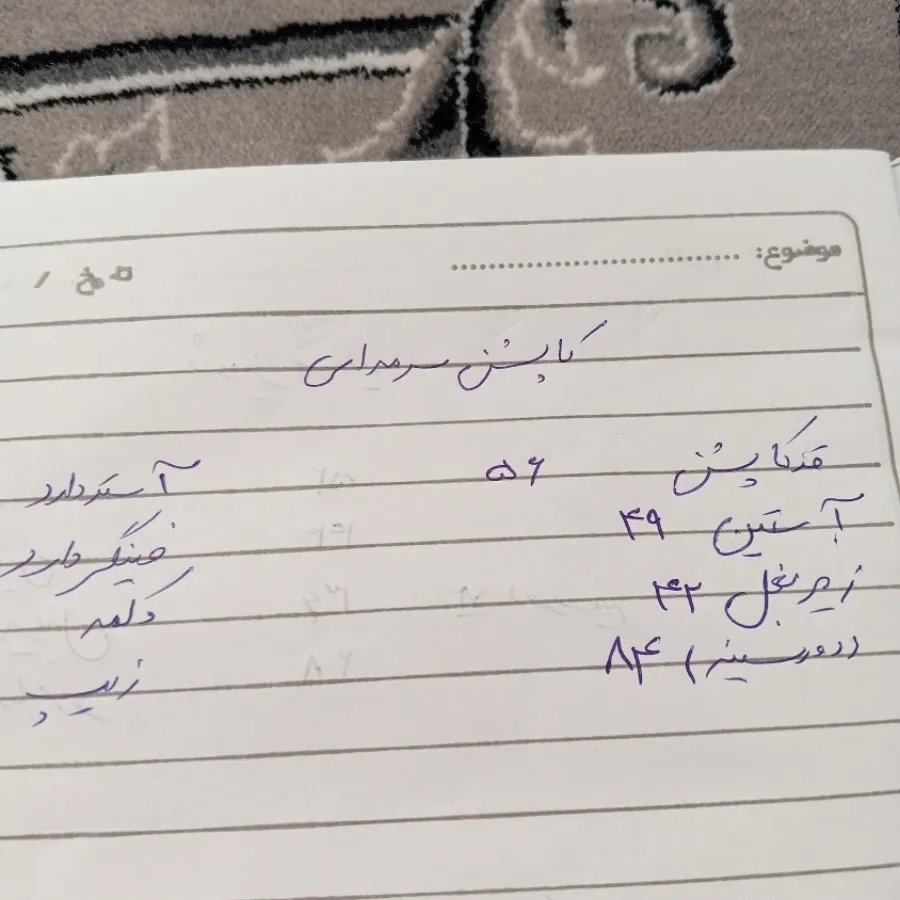 موضوع:
کاپشن سرمه‌ای
قد کاپشن ۵۶ آستر دارد
آستین ۴۹ فینگر دارد
زیر بغل ۴۲ دکمه
(دور سینه) ۸۴ زیپ